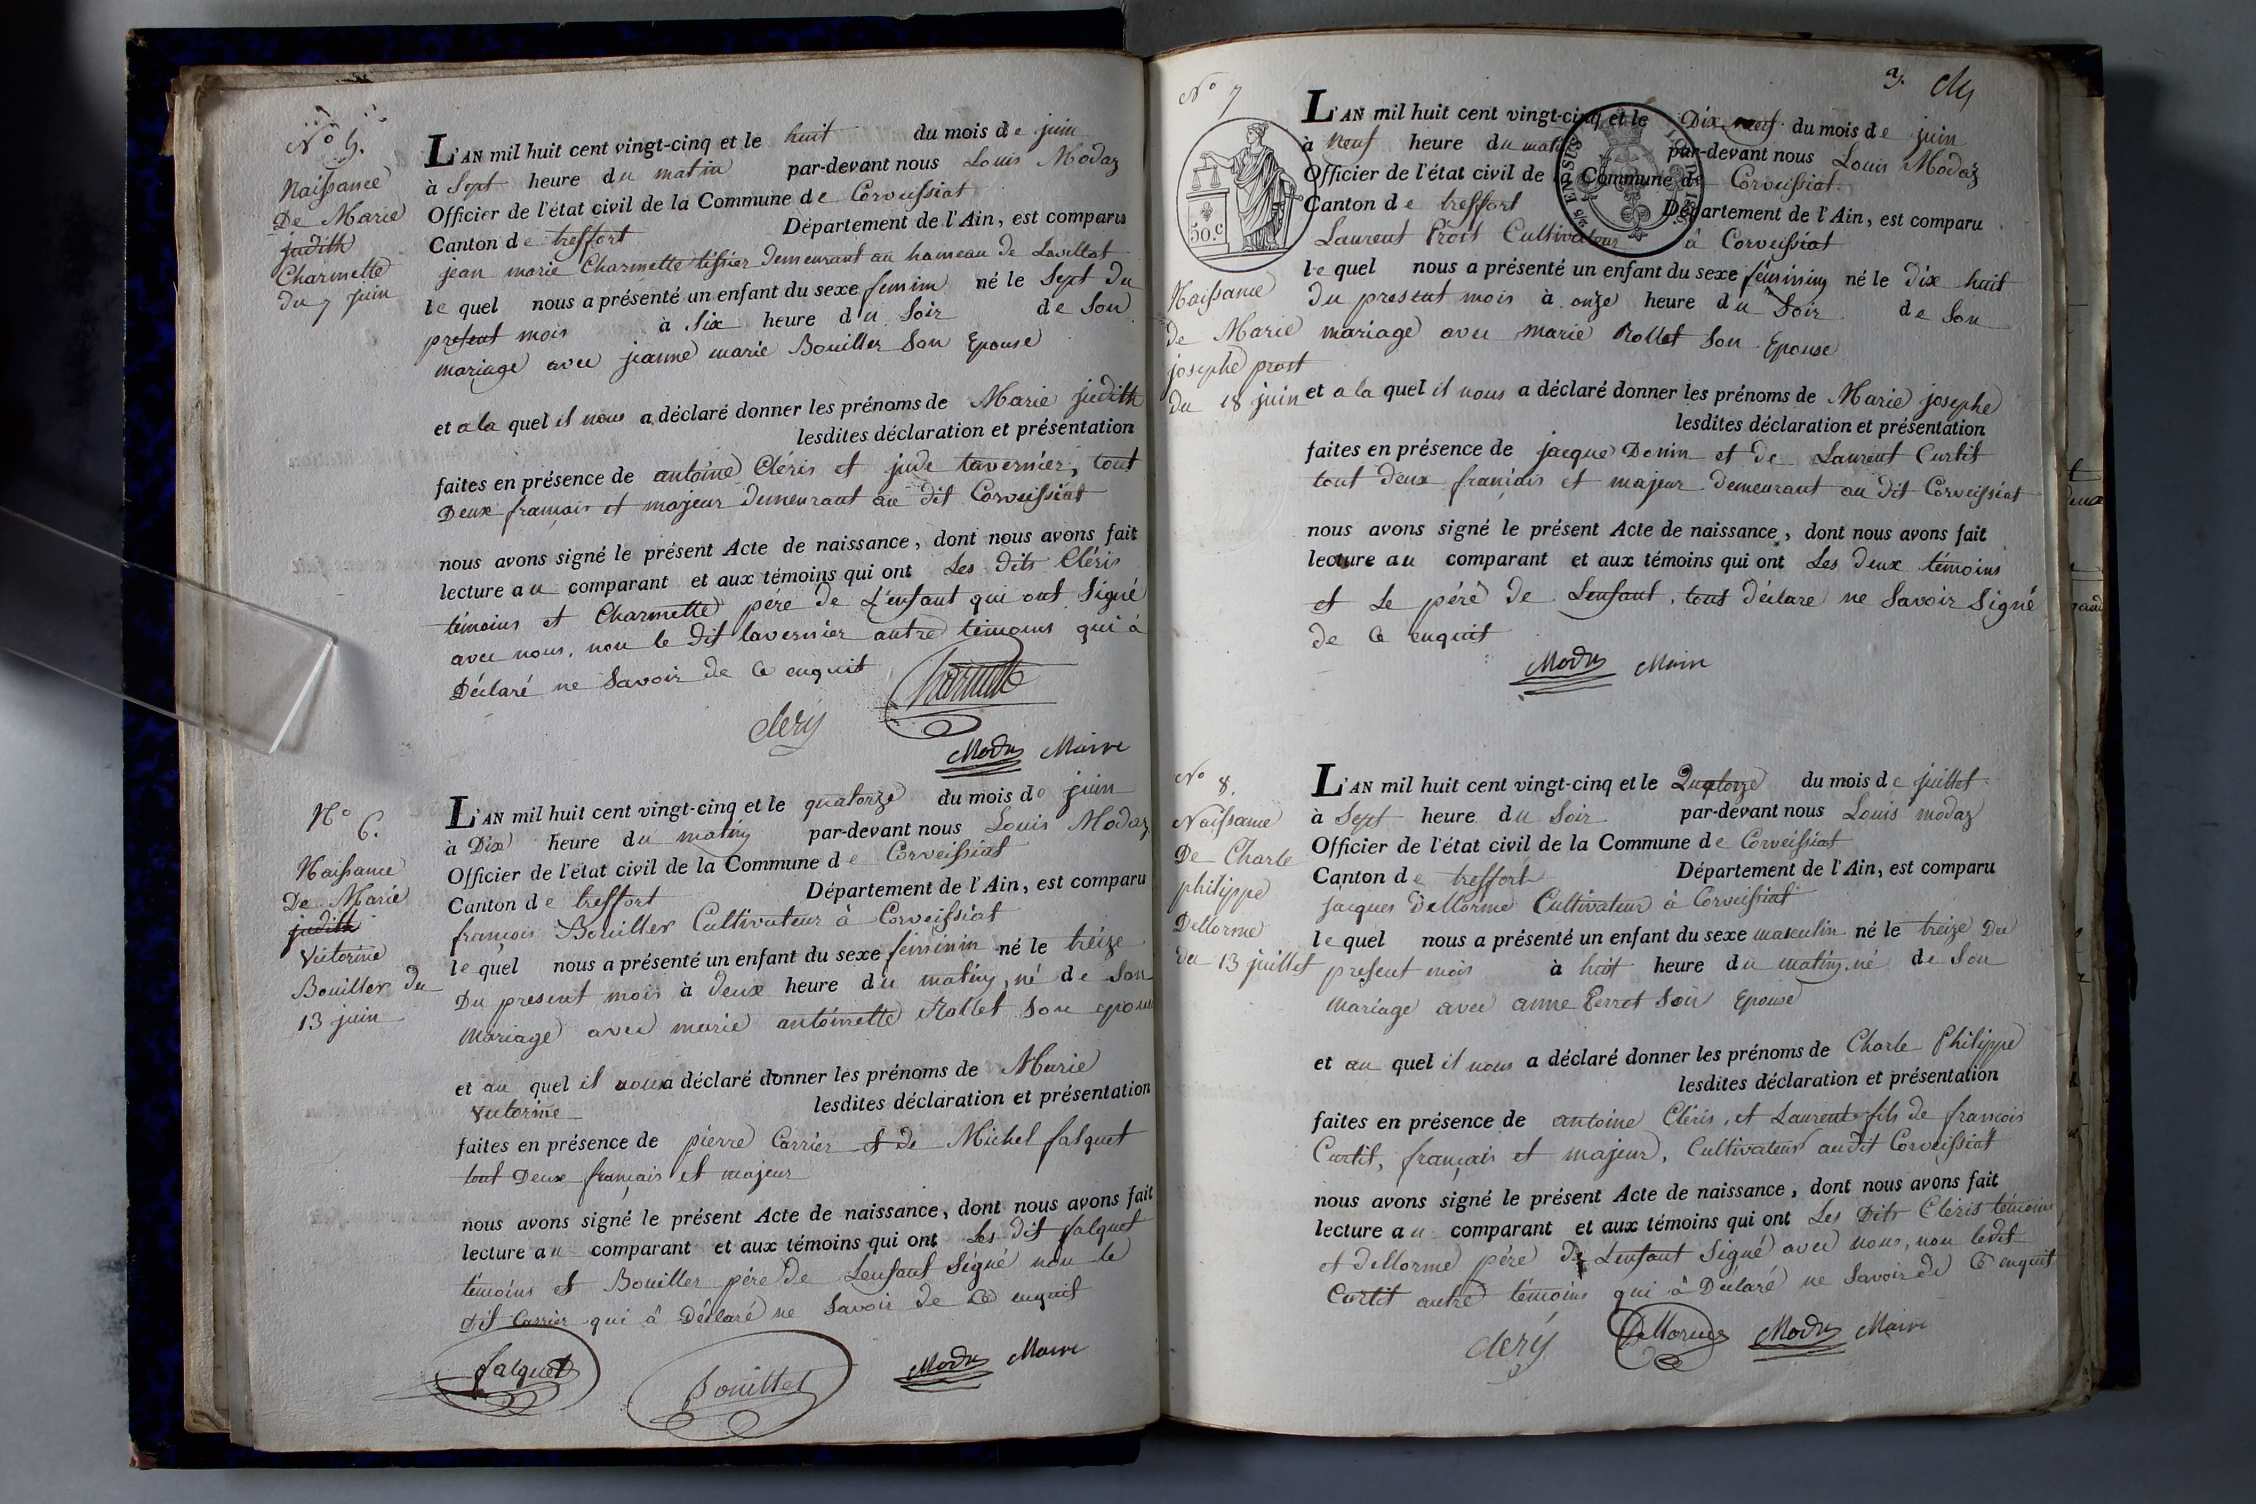 N° 5.
Naissance
De Marie
judith
Charmette
du 7 juin
L'AN mil huit cent vingt-cinq et le huit du mois de juin
à Sept heure du matin par-devant nous Louis Modaz
Officier de l'état civil de la Commune de Corveissiat
Canton de treffort Département de l'Ain, est comparu
jean marie Charmette tissier demeurant au hameau de Lavillat
le quel nous a présenté un enfant du sexe feminin né le Sept du
present mois à Six heure du Soir de Son
mariage avec jeanne marie Bouiller Son Epouse
et a la quel il nous a déclaré donner les prénoms de Marie judith
lesdites déclaration et présentation
faites en présence de antoine Cléris et jude tavernier, tout
Deux français et majeur demeurant au dit Corveissiat
nous avons signé le présent Acte de naissance, dont nous avons fait
lecture au comparant et aux témoins qui ont Les dits Cléris
témoins et Charmette père de L'enfant qui ont Signé
avec nous, non le dit tavernier autre témoins qui à
Déclaré ne Savoir de Ce enquit
Charmette
cleris
Modas Maire
N° 6.
Naissance
De Marie
judith
Victorine
Bouiller du
13 juin
L'AN mil huit cent vingt-cinq et le quatorze du mois de juin
à Dix heure du matin par-devant nous Louis Modaz
Officier de l'état civil de la Commune de Corveissiat
Canton de treffort Département de l'Ain, est comparu
françois Bouiller Cultivateur à Corveissiat
le quel nous a présenté un enfant du sexe feminin né le treize
Du present mois à deux heure du matin, né de Son
Mariage avec marie antoinette Rollet Son epouse
et au quel il nous a déclaré donner les prénoms de Marie
Victorine lesdites déclaration et présentation
faites en présence de pierre Carrier et de Michel falquet
tout Deux français et majeur
nous avons signé le présent Acte de naissance, dont nous avons fait
lecture au comparant et aux témoins qui ont Les dit falquet
témoins et Bouiller père de Lenfant Signé non le
dit Carrier qui à Déclaré ne Savoir de Ce enquit
falquet Bouillet Modas Maire
N° 7
50.c
Naissance
de Marie
josephe prost
du 18 juin
L'AN mil huit cent vingt-cinq et le Dix neuf du mois de juin
à Neuf heure du matin par-devant nous Louis Modaz
Officier de l'état civil de la Commune de Corveissiat
Canton de treffort Département de l'Ain, est comparu
Laurent Prost Cultivateur à Corveissiat
le quel nous a présenté un enfant du sexe féminin né le dix huit
du present mois à onze heure du Soir de Son
mariage avec marie Rollet Son Epouse
et a la quel il nous a déclaré donner les prénoms de Marie josephe
lesdites déclaration et présentation
faites en présence de jacque Donin et de Laurent Curtit
tout deux français et majeur demeurant au dit Corveissiat
nous avons signé le présent Acte de naissance, dont nous avons fait
lecture au comparant et aux témoins qui ont Les deux témoins
et Le père de Lenfant, tout déclaré ne Savoir Signé
de Ce enquit
Modas Maire
N° 8.
Naissance
De Charle
philippe
Dellorme
du 13 juillet
L'AN mil huit cent vingt-cinq et le Quatorze du mois de juillet
à Sept heure du Soir par-devant nous Louis modaz
Officier de l'état civil de la Commune de Corveissiat
Canton de treffort Département de l'Ain, est comparu
jacques Dellorme Cultivateur à Corveissiat
le quel nous a présenté un enfant du sexe masculin né le treize Du
present mois à huit heure du matin, né de Son
Mariage avec anne Perret Son Epouse
et au quel il nous a déclaré donner les prénoms de Charle Philippe
lesdites déclaration et présentation
faites en présence de antoine Cléris, et Laurent fils de francois
Curtit, français et majeur, Cultivateur audit Corveissiat
nous avons signé le présent Acte de naissance, dont nous avons fait
lecture au comparant et aux témoins qui ont Les Dits Cléris témoins
et dellorme père de Lenfant Signé avec nous, non ledit
Curtit autre témoins qui à Déclaré ne Savoir de Ce enquit
cleris Dellorme Modas Maire